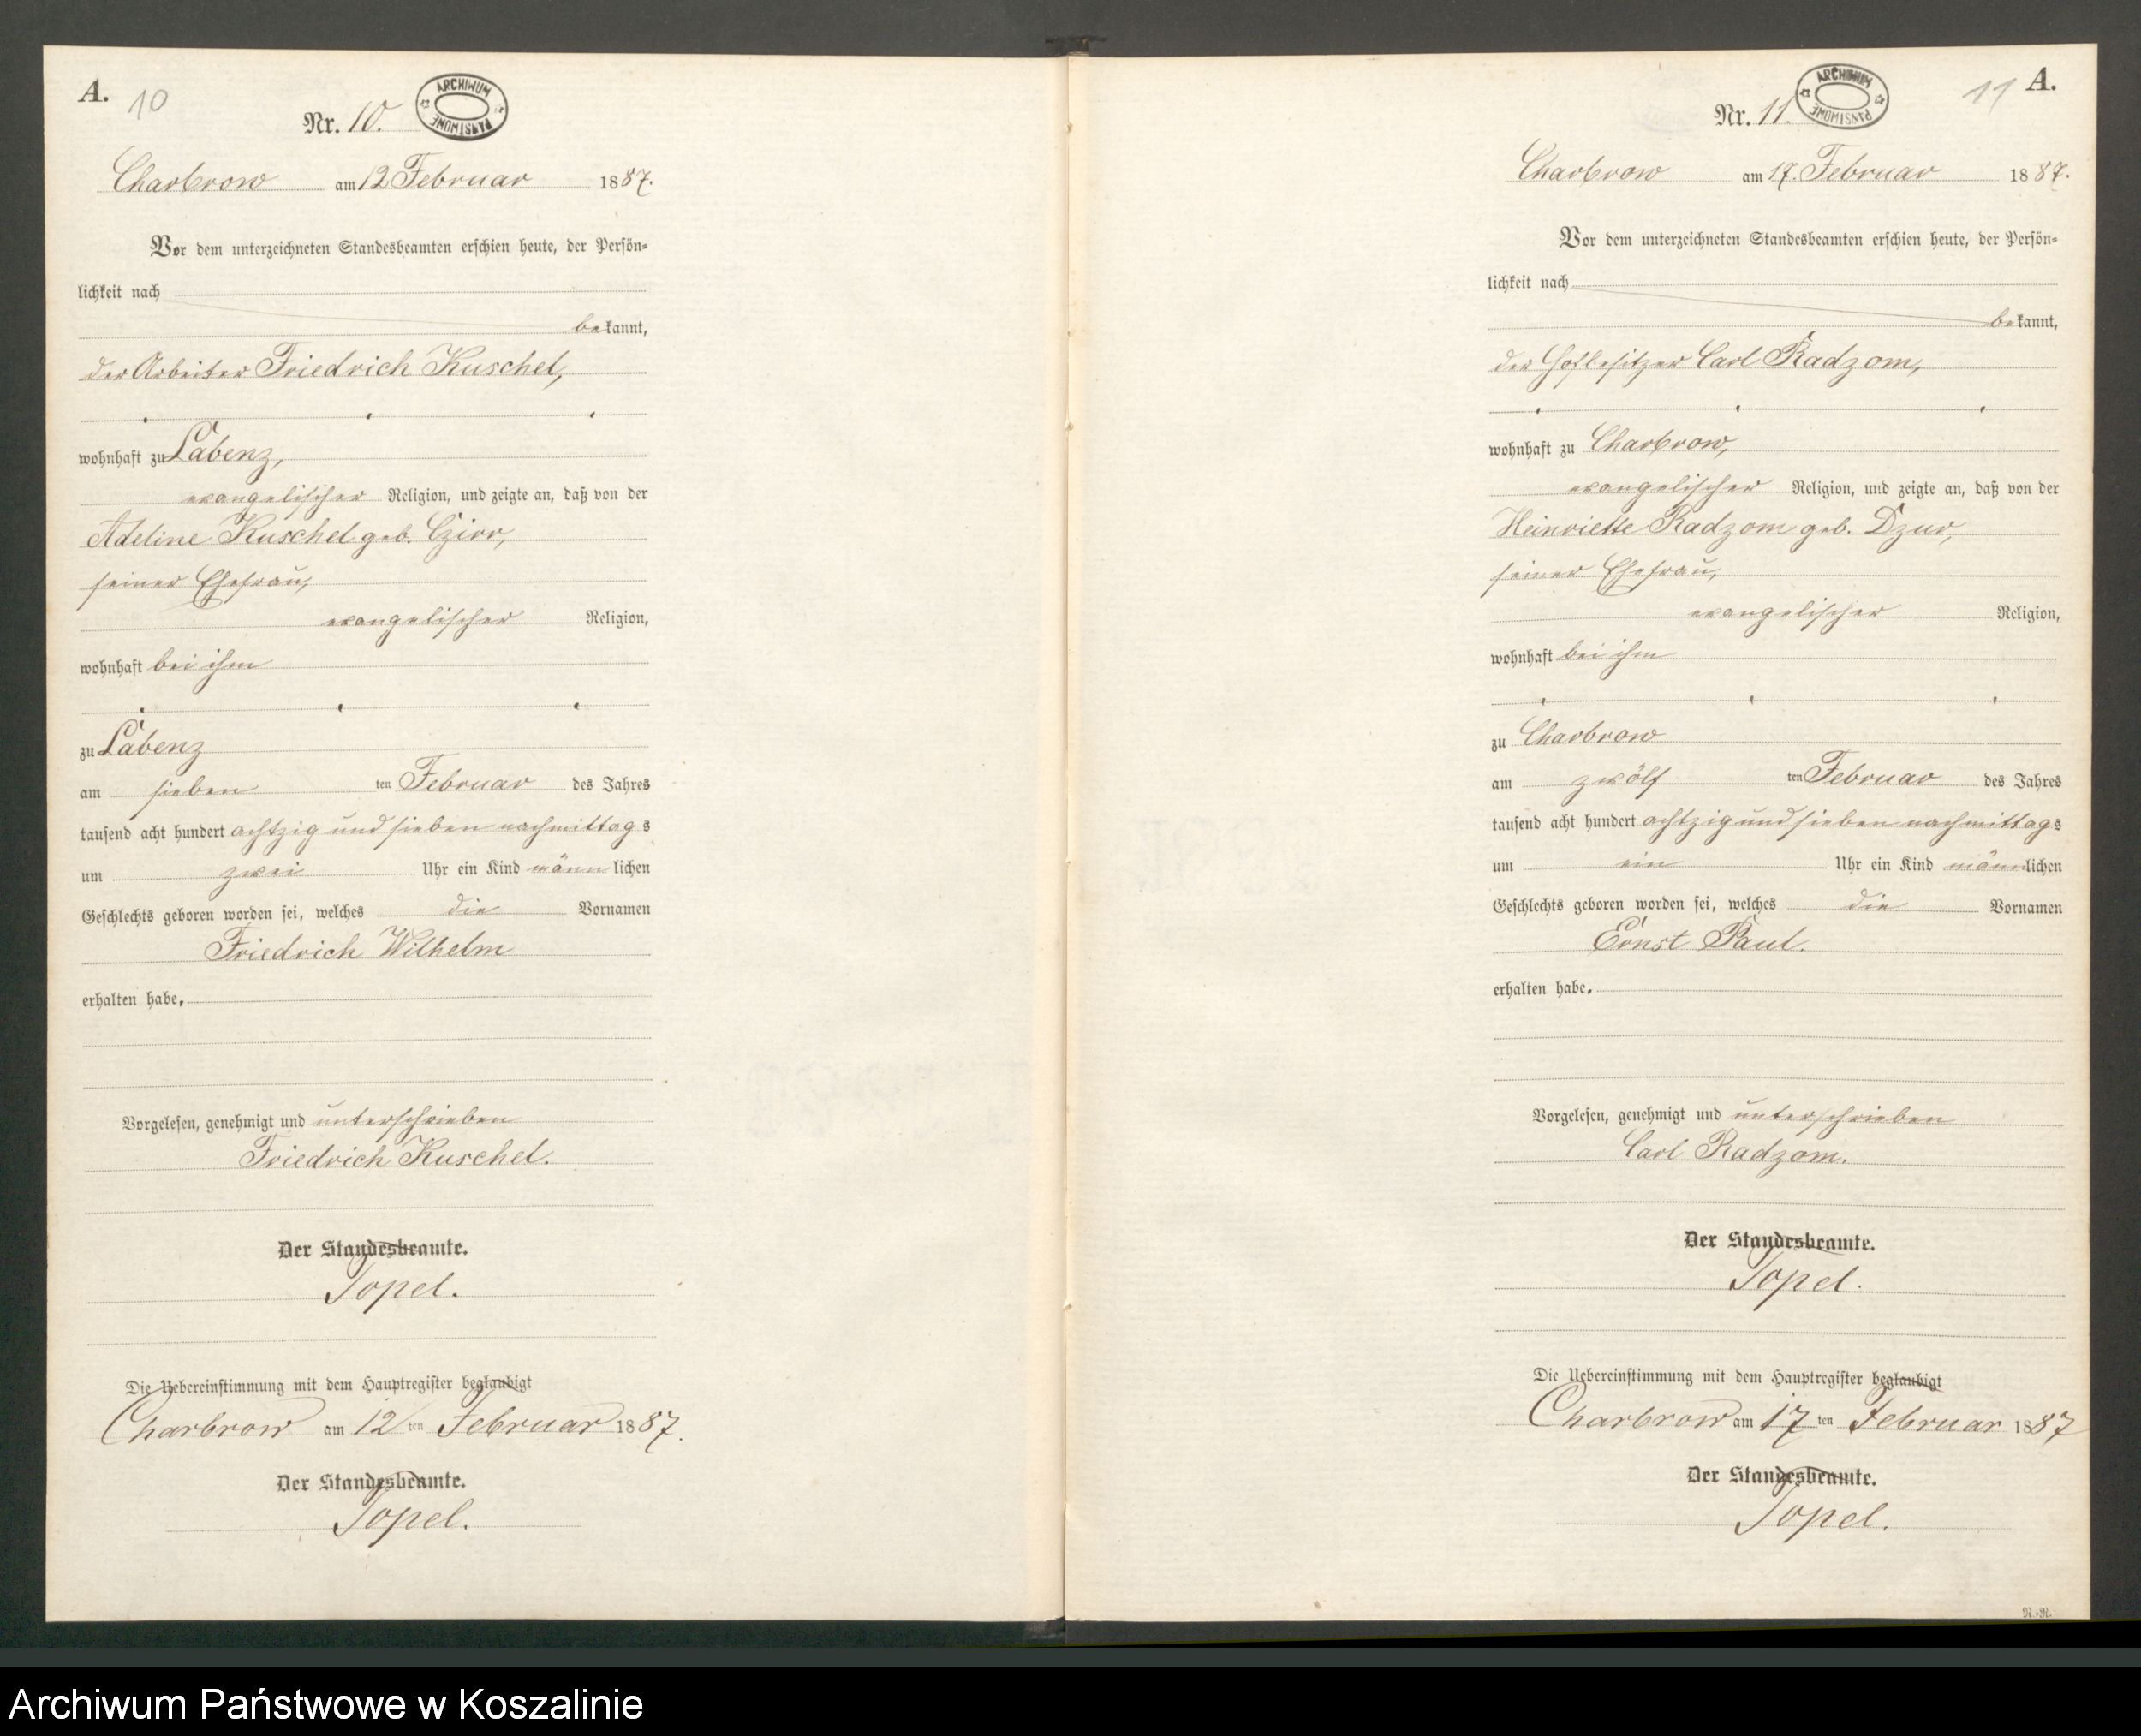 A.
10
Nr. 10.
ARCHIWUM PAŃSTWOWE
Charbrow am 12 Februar 1887.
Vor dem unterzeichneten Standesbeamten erschien heute, der Persön-
lichkeit nach
bekannt,
der Arbeiter Friedrich Kuschel,
wohnhaft zu Labenz,
evangelischer Religion, und zeigte an, daß von der
Adeline Kuschel geb. Czirr,
seiner Ehefrau,
evangelischer Religion,
wohnhaft bei ihm
zu Labenz
am sieben ten Februar des Jahres
tausend acht hundert achtzig und sieben nachmittags
um zwei Uhr ein Kind männlichen
Geschlechts geboren worden sei, welches die Vornamen
Friedrich Wilhelm
erhalten habe.
Vorgelesen, genehmigt und unterschrieben
Friedrich Kuschel.
Der Standesbeamte.
Topel.
Die Uebereinstimmung mit dem Hauptregister beglaubigt
Charbrow am 12 ten Februar 1887.
Der Standesbeamte.
Topel.
A.
11
Nr. 11.
ARCHIWUM PAŃSTWOWE
Charbrow am 17. Februar 1887.
Vor dem unterzeichneten Standesbeamten erschien heute, der Persön-
lichkeit nach
bekannt,
der Hofbesitzer Carl Radzom,
wohnhaft zu Charbrow,
evangelischer Religion, und zeigte an, daß von der
Heinriette Radzom geb. Dzur,
seiner Ehefrau,
evangelischer Religion,
wohnhaft bei ihm
zu Charbrow
am zwölf ten Februar des Jahres
tausend acht hundert achtzig und sieben nachmittags
um ein Uhr ein Kind männlichen
Geschlechts geboren worden sei, welches die Vornamen
Ernst Paul.
erhalten habe.
Vorgelesen, genehmigt und unterschrieben
Carl Radzom.
Der Standesbeamte.
Topel.
Die Uebereinstimmung mit dem Hauptregister beglaubigt
Charbrow am 17 ten Februar 1887
Der Standesbeamte.
Topel.
Archiwum Państwowe w Koszalinie